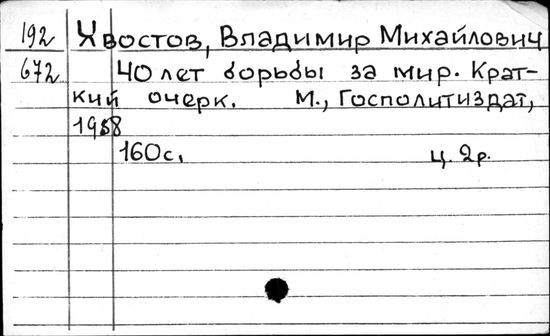 192 Хвостов, Владимир Михайлович
672 40 лет борьбы за мир. Крат-
кий очерк. М., Госполитиздат,
1958
160с. ц. 2р.